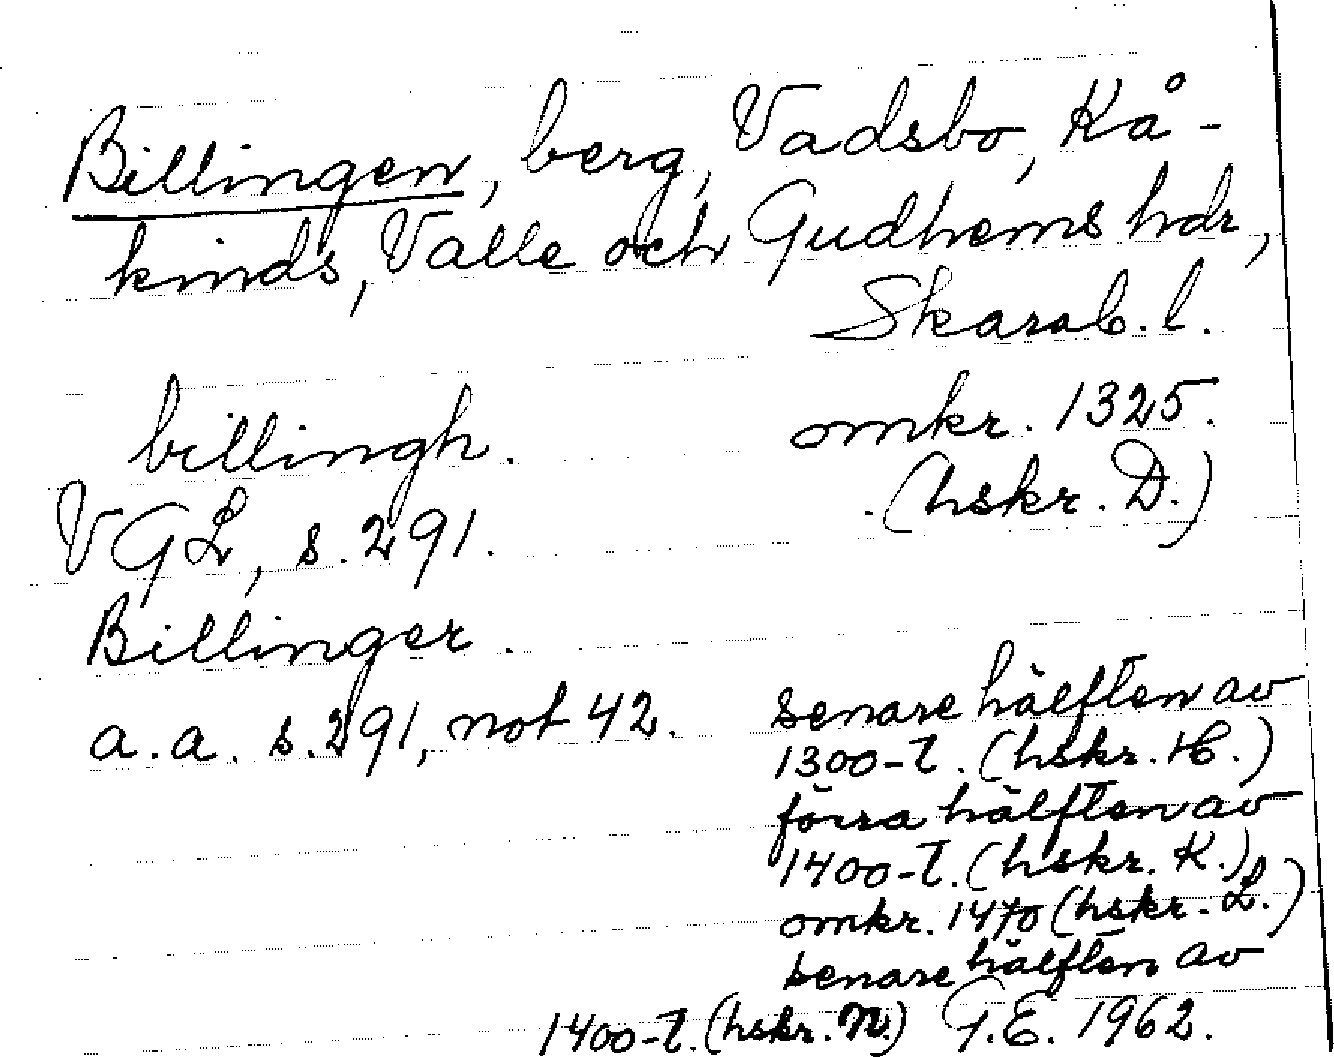 Billingen, berg, Vadsbo, Kå-
kinds, Valle och Gudhems hdr,
Skarab. l.
billingh. omkr. 1325.
(hskr. D.)
VGL, s. 291.
Billinger.
a.a. s. 291, not 42. senare hälften av
1300-t. (hskr. H.)
förra hälften av
1400-t. (hskr. K.)
omkr. 1470 (hskr. L.)
senare hälften av
1400-t. (hskr. N.) G.E. 1962.